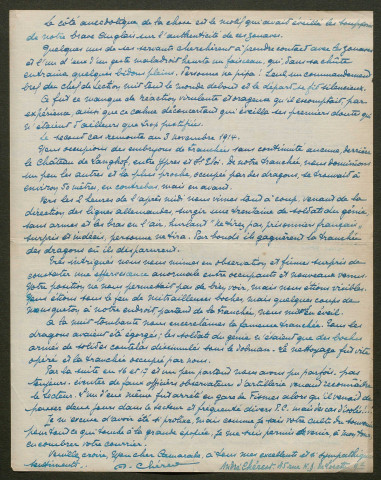 Le côté anecdotique de la chose est le motif qui avait éveillé les soupçons
de notre brave anglais sur l'authenticité de ces zouaves.
Quelques uns de ses servants cherchèrent à prendre contact avec les zouaves
et l'un d'eux d'un geste maladroit heurta un faisceau, qui dans sa chute
entraina quelques bidons pleins. Personne ne pipa! Seul un commandement
bref du chef de section mit tout le monde debout et le départ se fit silencieux.
Ce fut ce manque de réaction virulente et orageuse qu'il escomptait par
expérience, ainsi que ce calme déconcertant qui éveilla ses premiers doutes qui
n'étaient d'ailleurs que trop justifiés.
Le second cas remonte au 3 novembre 1914.
Nous occupions des embryons de tranchée sans continuité aucune derrière
le château de, entre Ypres et St Eloi. De notre tranchée, nous dominions
un peu les autres et la plus proche, occupée par des dragons, se trouvait à
environ 50 mètres, en contrebas mais en avant.
Vers les 2 heures de l'après midi nous vîmes tout à coup, venant de la
direction des lignes allemandes, surgir une trentaine de soldats du génie,
sans armes et les bras en l'air, hurlant "ne tirez pas, prisonniers français".
Surpris et indécis, personne ne tira. Par bonds ils gagnèrent la tranchée
des dragons où ils disparurent.
Très intrigués nous nous mîmes en observation, et fûmes surpris de
constater une effervescence anormale entre occupants et nouveaux venus.
Notre position ne nous permettait pas de bien voir, mais nous étions visibles.
Nous étions sous le feu de mitrailleuses boches, mais quelques coups de
mousqueton, à notre endroit partant de la tranchée, nous mit en éveil.
A la nuit tombante nous encerclâmes la fameuse tranchée. Tous les
dragons avaient été égorgés; les soldats du génie n'étaient que des boches
armés de solides coutelas dissimulés sous le dolman. Le nettoyage fut vite
opéré et la tranchée occupée par nous.
Par la suite en 16 et 17 et un peu partout nous avons pu parfois, pas
toujours, éventer de faux officiers observateurs d'artillerie, venant reconnaître
le secteur. L'un d'eux même fut arrêté en gare de Fismes alors qu'il venait de
passer deux jours dans le secteur et fréquenté divers P.C.
Je m'excuse d'avoir été si prolixe, mais comme je sais votre culte du souvenir
pour tout ce qui touche à la grande épopée, je me suis permis de venir, à mon tour
encombrer votre courrier.
Veuillez croire, mon cher Camarade, à tous mes excellents et si sympathiques
sentiments.
A. Chéreau
André Chéreau